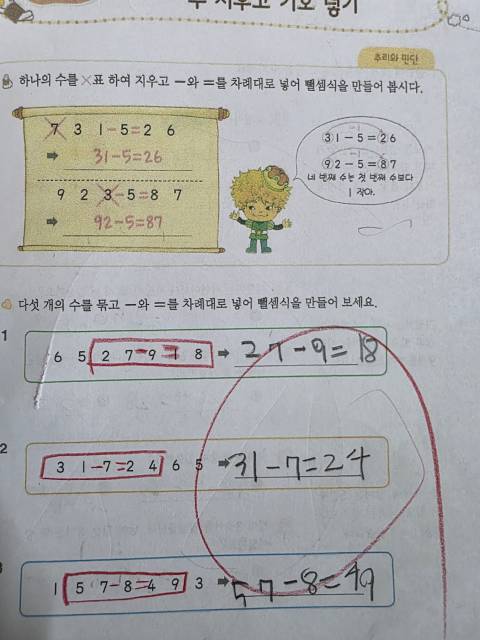 수 지우고 기호 넣기
추리와 판단
하나의 수를 ×표 하여 지우고 −와 =를 차례대로 넣어 뺄셈식을 만들어 봅시다.
7 3 1-5=2 6
➡ 31-5=26
9 2 3-5=8 7
➡ 92-5=87
31-5=26
92-5=87
네 번째 수는 첫 번째 수보다
1 작아.
다섯 개의 수를 묶고 −와 =를 차례대로 넣어 뺄셈식을 만들어 보세요.
1
6 5 2 7-9=1 8 ➡ 27-9=18
2
3 1-7=2 4 6 5 ➡ 31-7=24
1 5 7-8=4 9 3 ➡ 57-8=49